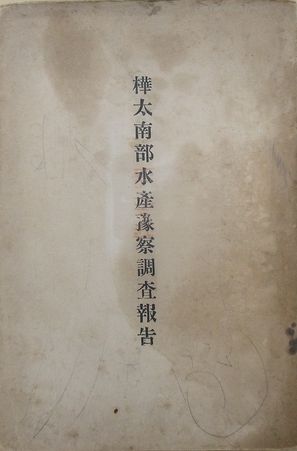 樺太南部水產豫察調查報告